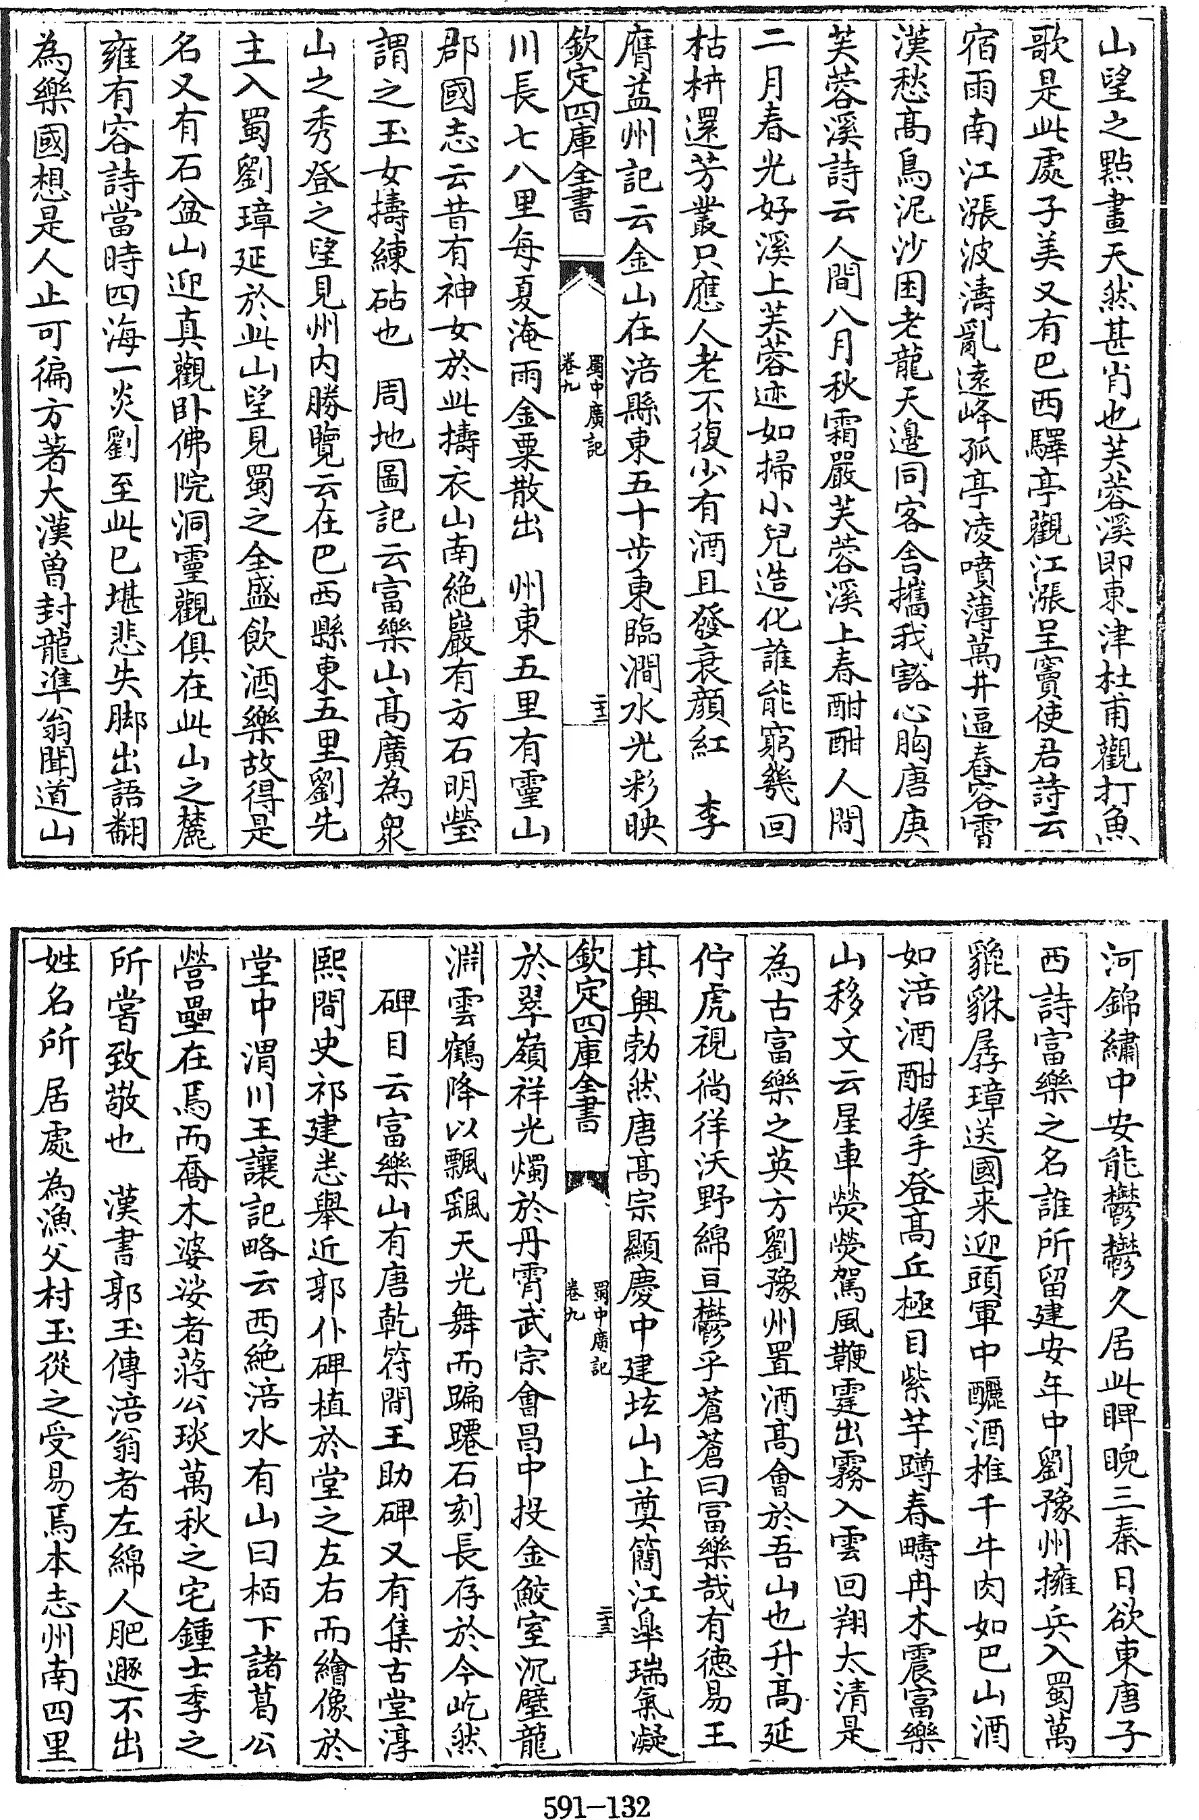 山望之點畫天然甚肖也芙蓉溪即東津杜甫觀打魚
歌是此處子美又有巴西驛亭觀江漲呈竇使君詩云
宿雨南江漲波濤亂遠峰孤亭凌噴薄萬井逼舂容霄
漢愁高鳥泥沙困老龍天邊同客舎攜我豁心胸唐庚
芙蓉溪詩云人間八月秋霜嚴芙蓉溪上春酣酣人間
二月春光好溪上芙蓉迹如掃小兒造化誰能窮幾回
枯枿還芳叢只應人老不復少有酒且發衰顔紅　李
膺益州記云金山在涪縣東五十步東臨澗水光彩映
欽定四庫全書　蜀中廣記　卷九　二十二
川長七八里每夏淹雨金粟散出　州東五里有靈山
郡國志云昔有神女於此擣衣山南絶巖有方石明瑩
謂之玉女擣練砧也　周地圖記云富樂山高廣為衆
山之秀登之望見州内勝覽云在巴西縣東五里劉先
主入蜀劉璋延於此山望見蜀之全盛飲酒樂故得是
名又有石盆山迎真觀卧佛院洞靈觀俱在此山之麓
雍有容詩當時四海一炎劉至此已堪悲失脚出語翻
為樂國想是人止可偏方著大漢曾封龍準翁聞道山
河錦繡中安能鬱鬱久居此睥睨三秦日欲東唐子
西詩富樂之名誰所留建安年中劉豫州擁兵入蜀萬
貔貅孱璋送國来迎頭軍中釃酒椎千牛肉如巴山酒
如涪酒酣握手登高丘極目紫芋蹲春疇冉木震富樂
山移文云星車熒熒駕風鞭霆出霧入雲回翔太清是
為古富樂之英方劉豫州置酒高會於吾山也升高延
佇虎視徜徉沃野綿亘鬱乎蒼蒼曰富樂哉有徳易王
其興勃然唐高宗顯慶中建坛山上奠簡江臯瑞氣凝
欽定四庫全書　蜀中廣記　卷九　二十三
於翠嶺祥光燭於丹霄武宗會昌中投金鮫室沉璧龍
淵雲鶴降以飄颻天光舞而蹁躚石刻長存於今屹然
碑目云富樂山有唐乾符間王助碑又有集古堂淳
熙間史祁建悉舉近郭仆碑植於堂之左右而繪像於
堂中渭川王讓記略云西絶涪水有山曰栢下諸葛公
營壘在焉而喬木婆娑者蔣公琰萬秋之宅鍾士季之
所嘗致敬也　漢書郭玉傳涪翁者左綿人肥遯不出
姓名所居處為漁父村玉從之受易焉本志州南四里
591-132